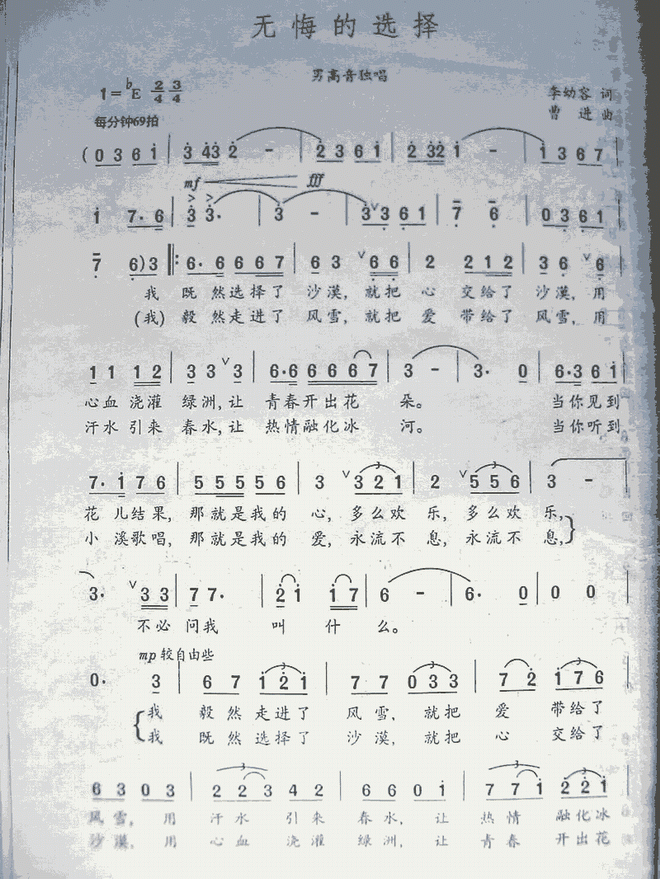 无悔的选择
男高音独唱
1=♭E 2/4 3/4
李幼容 词
每分钟69拍
曹 进 曲
(0 3 6 1 | 3 43 2 - | 2 3 6 1 | 2 32 1 - | 1 3 6 7 |
mf fff
1 7. 6 | 3 3. | 3 - | 3 3 6 1 | 7 6 | 0 3 6 1 |
7 6) 3 |: 6. 6 6 6 7 | 6 3 6 6 | 2 2 1 2 | 3 6 6 |
我 既然选择了 沙漠, 就把 心 交给了 沙漠, 用
(我) 毅然走进了 风雪, 就把 爱 带给了 风雪, 用
1 1 1 2 | 3 3 3 | 6. 6 6 6 6 7 | 3 - | 3. 0 | 6. 3 6 1 |
心血 浇灌 绿洲, 让 青春开出花 朵。 当你见到
汗水 引来 春水, 让 热情融化冰 河。 当你听到
7. 1 7 6 | 5 5 5 5 6 | 3 3 2 1 | 2 5 5 6 | 3 - |
花 儿结果, 那就是我的 心, 多么欢 乐, 多么欢 乐,
小 溪歌唱, 那就是我的 爱, 永流不 息, 永流不 息,
3. 3 3 | 7 7. | 2 1 1 7 | 6 - | 6. 0 | 0 0 |
不必 问我 叫 什 么。
mp 较自由些
0. 3 | 6 7 1 2 1 | 7 7 0 3 3 | 7 2 1 7 6 |
我 毅然 走进了 风雪, 就把 爱 带给了
我 既然 选择了 沙漠, 就把 心 交给了
6 3 0 3 | 2 2 3 4 2 | 6 6 0 1 | 7 7 1 2 2 1 |
风雪, 用 汗水 引来 春水, 让 热情 融化冰
沙漠, 用 心血 浇灌 绿洲, 让 青春 开出花